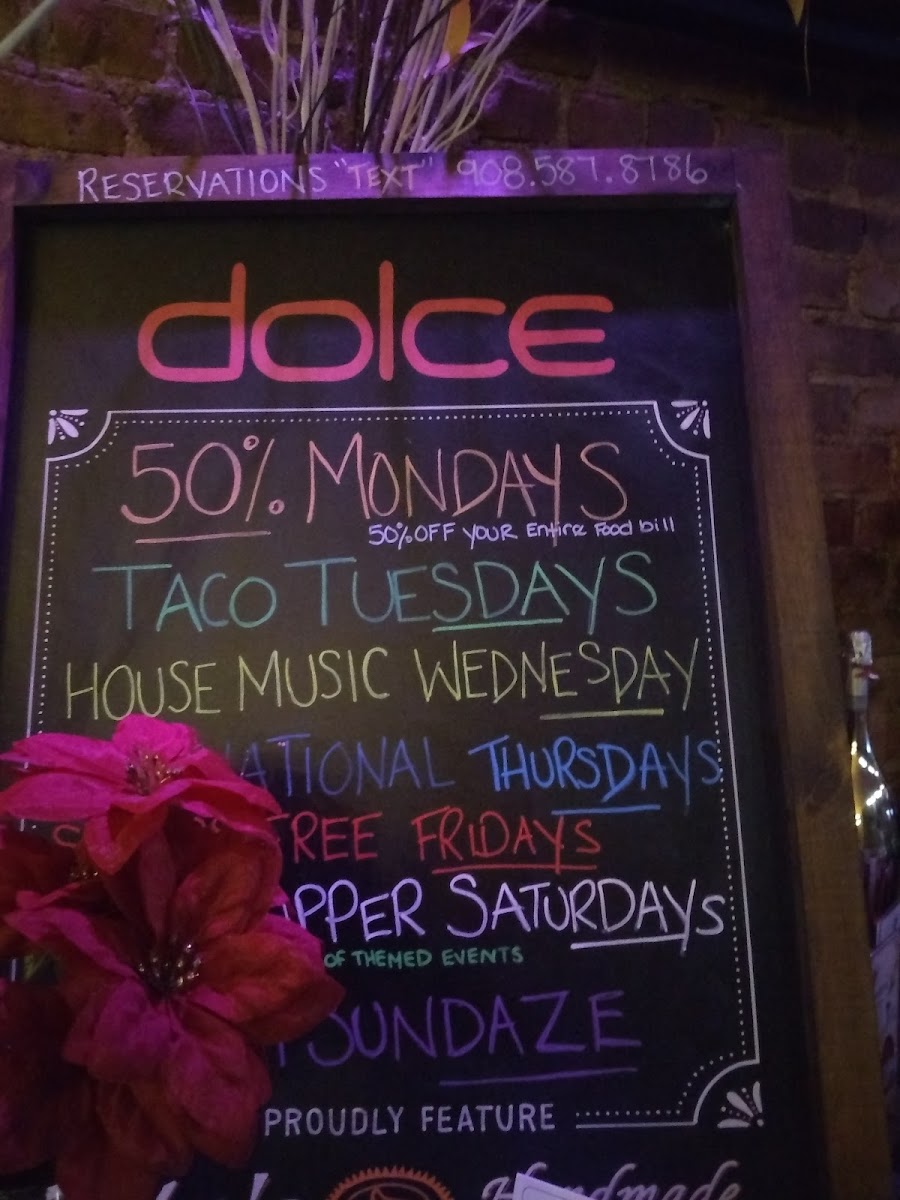 RESERVATIONS "TEXT" 908.587.8786
dolce
50% MONDAYS
50% OFF YOUR Entire Food bill
TACO TUESDAYS
HOUSE MUSIC WEDNESDAY
THURSDAYS
FREE FRIDAYS
SATURDAYS
OF THEMED EVENTS
SUNDAZE
PROUDLY FEATURE
Handmade